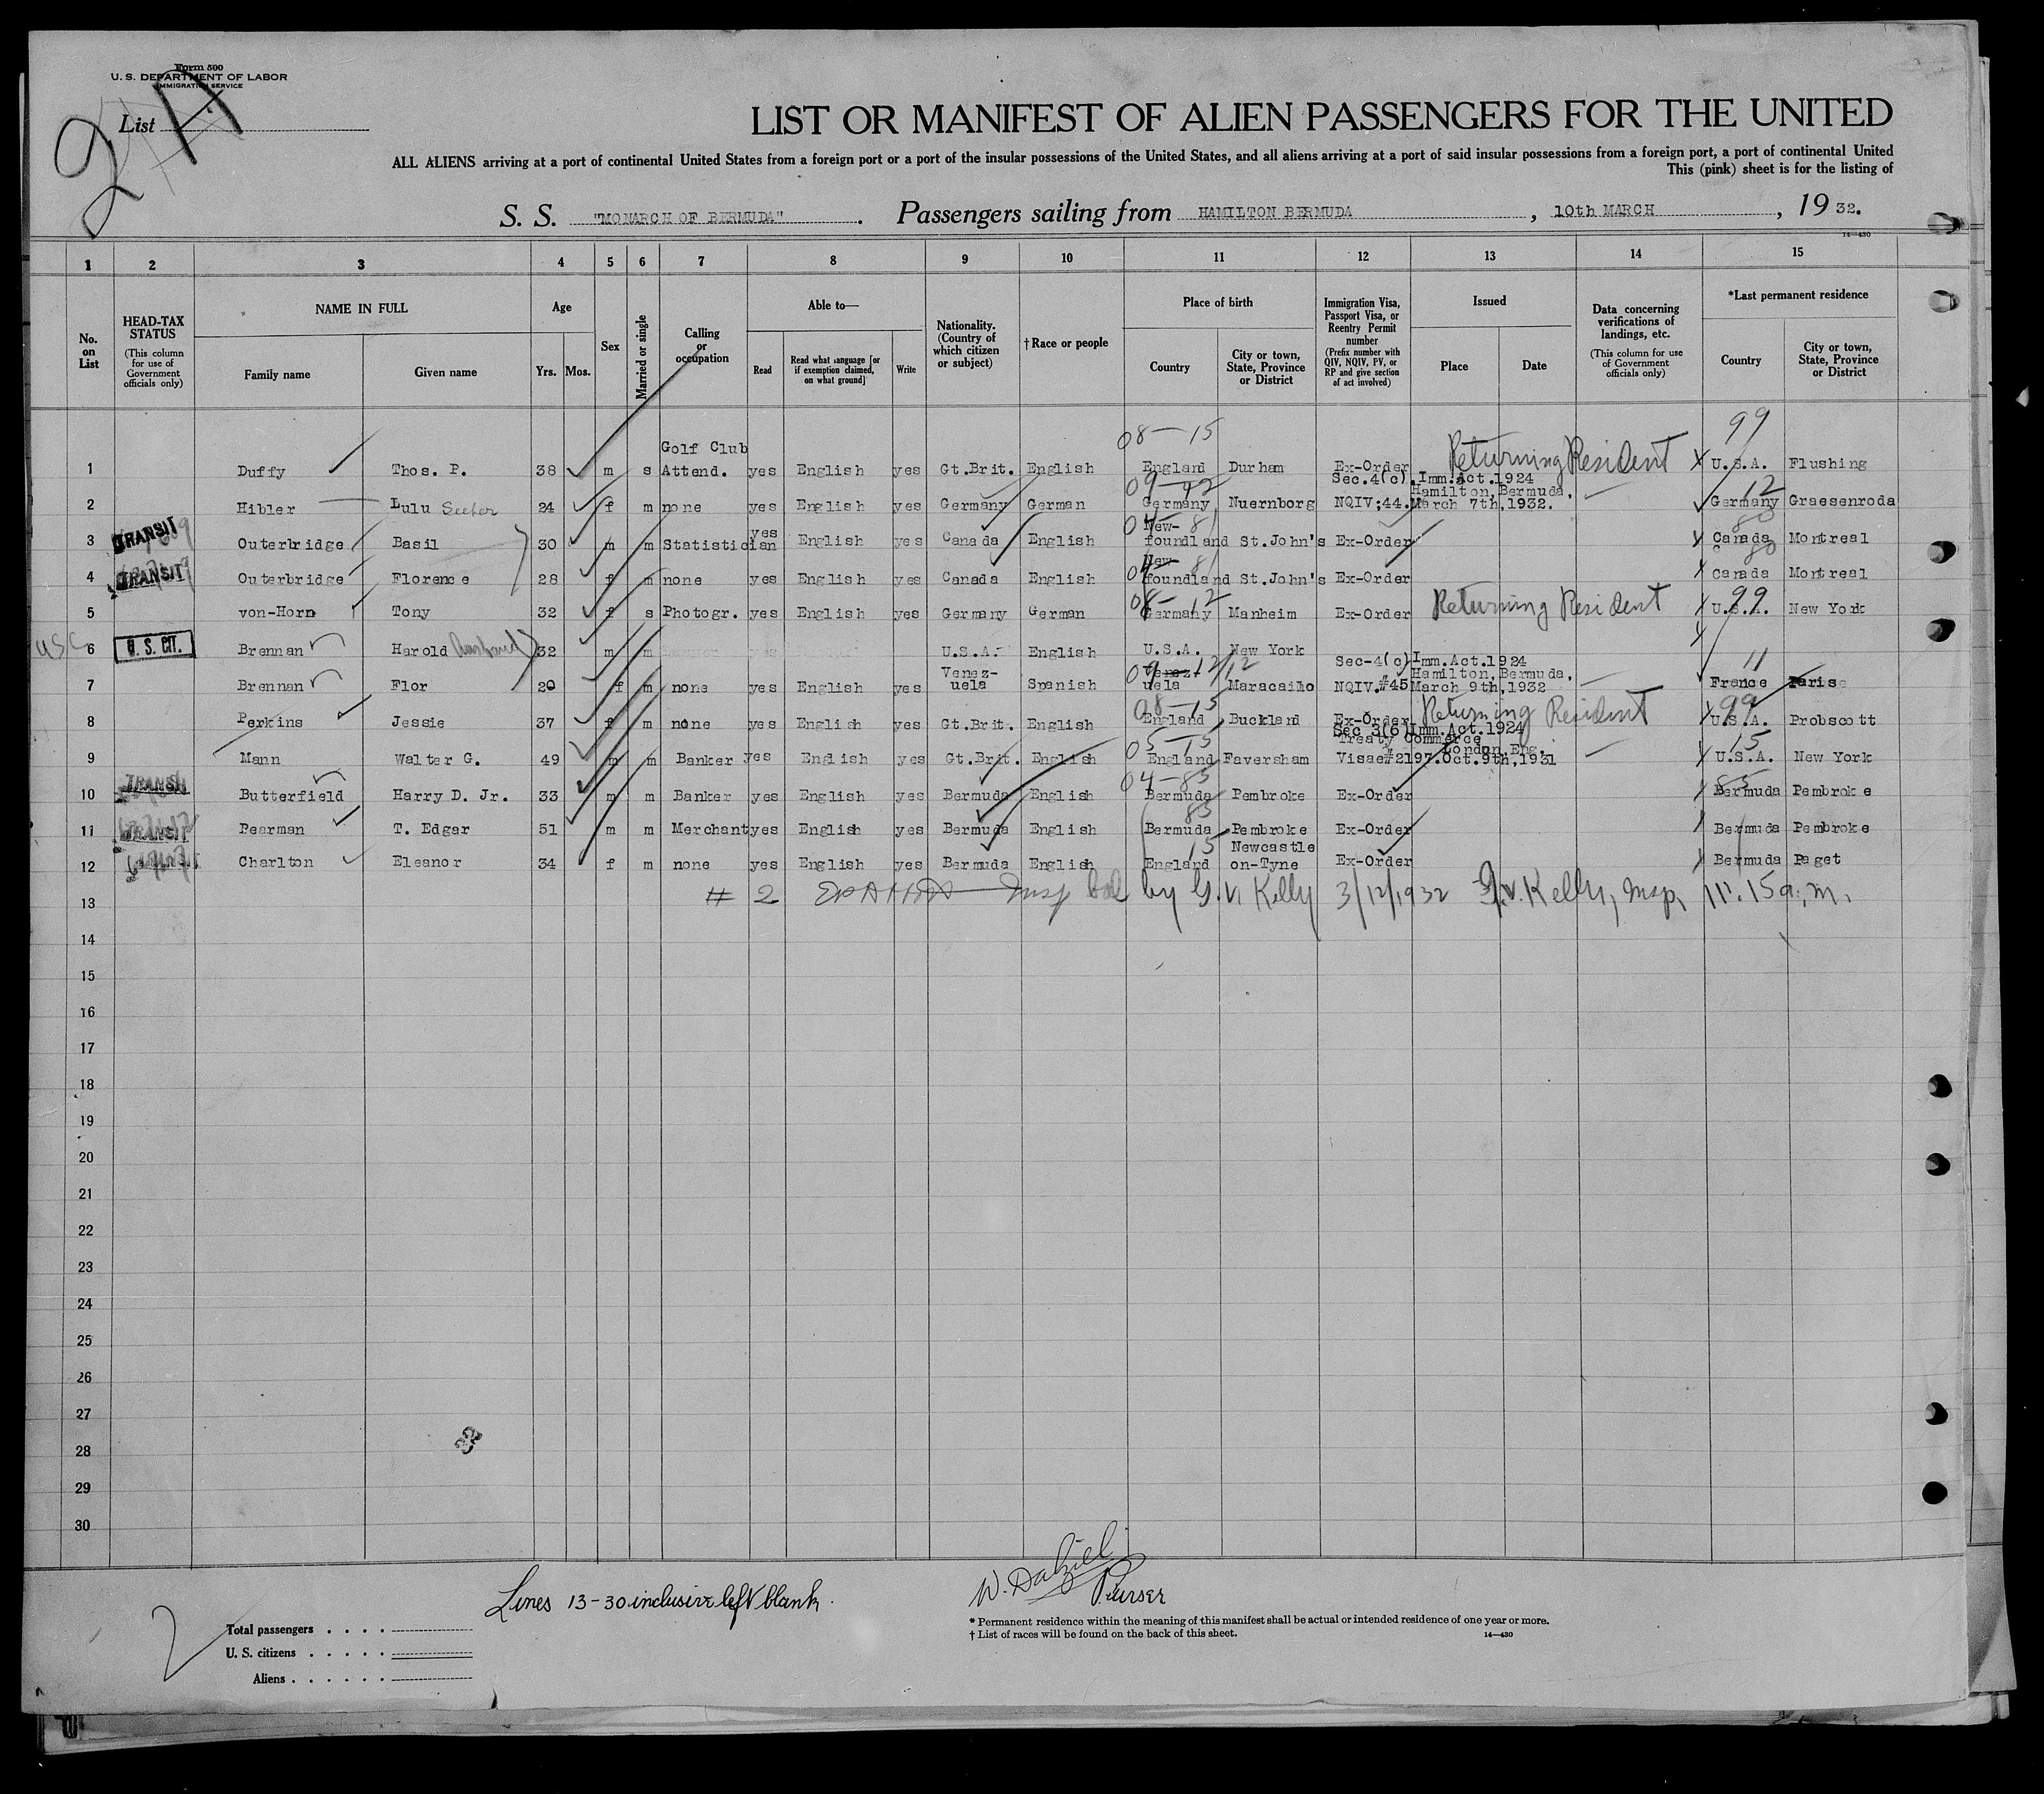 Form 500
U. S. DEPARTMENT OF LABOR
IMMIGRATION SERVICE
2 List
LIST OR MANIFEST OF ALIEN PASSENGERS FOR THE UNITED
ALL ALIENS arriving at a port of continental United States from a foreign port or a port of the insular possessions of the United States, and all aliens arriving at a port of said insular possessions from a foreign port, a port of continental United
This (pink) sheet is for the listing of
S. S. "MONARCH OF BERMUDA" . Passengers sailing from HAMILTON BERMUDA , 10th MARCH , 19 32.
14—430
1 2 3 4 5 6 7 8 9 10 11 12 13 14 15
No. on List
HEAD-TAX STATUS (This column for use of Government officials only)
NAME IN FULL Family name Given name
Age Yrs. Mos.
Sex
Married or single
Calling or occupation
Able to— Read Read what language [or if exemption claimed, on what ground] Write
Nationality. (Country of which citizen or subject)
†Race or people
Place of birth Country City or town, State, Province or District
Immigration Visa, Passport Visa, or Reentry Permit number (Prefix number with QIV, NQIV, PV, or RP and give section of act involved)
Issued Place Date
Data concerning verifications of landings, etc. (This column for use of Government officials only)
*Last permanent residence Country City or town, State, Province or District
08—15 99
1 Duffy Thos. P. 38 m s Golf Club Attend. yes English yes Gt.Brit. English England Durham Ex-Order Returning Resident U.S.A. Flushing
Sec.4(c).Imm.Act.1924
2 Hibler Lulu 24 f m none yes English yes Germany German Germany Nuernborg NQIV;44. Hamilton,Bermuda, March 7th,1932. 12 Germany Graesenroda
3 TRANSIT Outerbridge Basil 30 m m Statistician yes English yes Canada English New-foundland St.John's Ex-Order 80 Canada Montreal
4 TRANSIT Outerbridge Florence 28 f m none yes English yes Canada English New-foundland St.John's Ex-Order 80 Canada Montreal
5 von-Horn Tony 32 f s Photogr. yes English yes Germany German 08—12 Germany Manheim Ex-Order Returning Resident 99 U.S.A. New York
USC 6 U. S. CIT. Brennan Harold husband 32 m m U.S.A. English U.S.A. New York
Sec-4(c) Imm.Act.1924
7 Brennan Flor 20 f m none yes English yes Venez-uela Spanish Venez-uela Maracaibo NQIV.#45 Hamilton,Bermuda, March 9th,1932 11 France Paris
8 Perkins Jessie 37 f m none yes English yes Gt.Brit. English 08—15 England Buckland Ex-Order Returning Resident 99 U.S.A. Probscott
Sec 3(6) Imm.Act.1924
Treaty Commerce
9 Mann Walter G. 49 m m Banker yes English yes Gt.Brit. English 05—15 England Faversham Visae#2197. London,Eng. Oct.9th,1931 15 U.S.A. New York
10 TRANSIT Butterfield Harry D. Jr. 33 m m Banker yes English yes Bermuda English 04—85 Bermuda Pembroke Ex-Order 85 Bermuda Pembroke
11 TRANSIT Pearman T. Edgar 51 m m Merchant yes English yes Bermuda English 85 Bermuda Pembroke Ex-Order Bermuda Pembroke
12 Charlton Eleanor 34 f m none yes English yes Bermuda English 15 England Newcastle on-Tyne Ex-Order Bermuda Paget
13 # 2 Insp by G. V. Kelly 3/12/1932 G.V. Kelly, Insp, 11:15 a.m.
14
15
16
17
18
19
20
21
22
23
24
25
26
27
28
29
30
Lines 13-30 inclusive left blank.
W. Dalziel
Purser
Total passengers
U. S. citizens
Aliens
* Permanent residence within the meaning of this manifest shall be actual or intended residence of one year or more.
† List of races will be found on the back of this sheet. 14—430